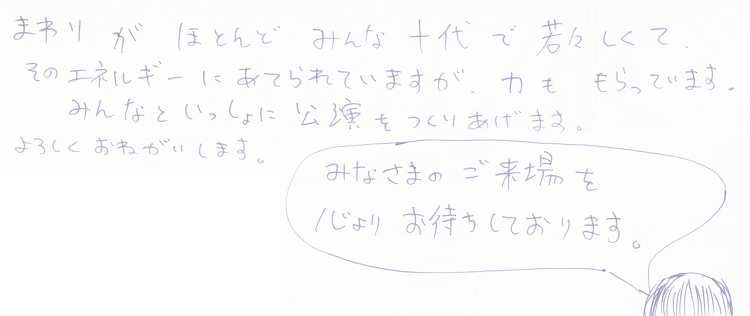 まわりがほとんどみんな十代で若々しくて、
そのエネルギーにあてられていますが、力ももらっています。
みんなといっしょに公演をつくりあげます。
よろしくおねがいします。
みなさまのご来場を
心よりお待ちしております。